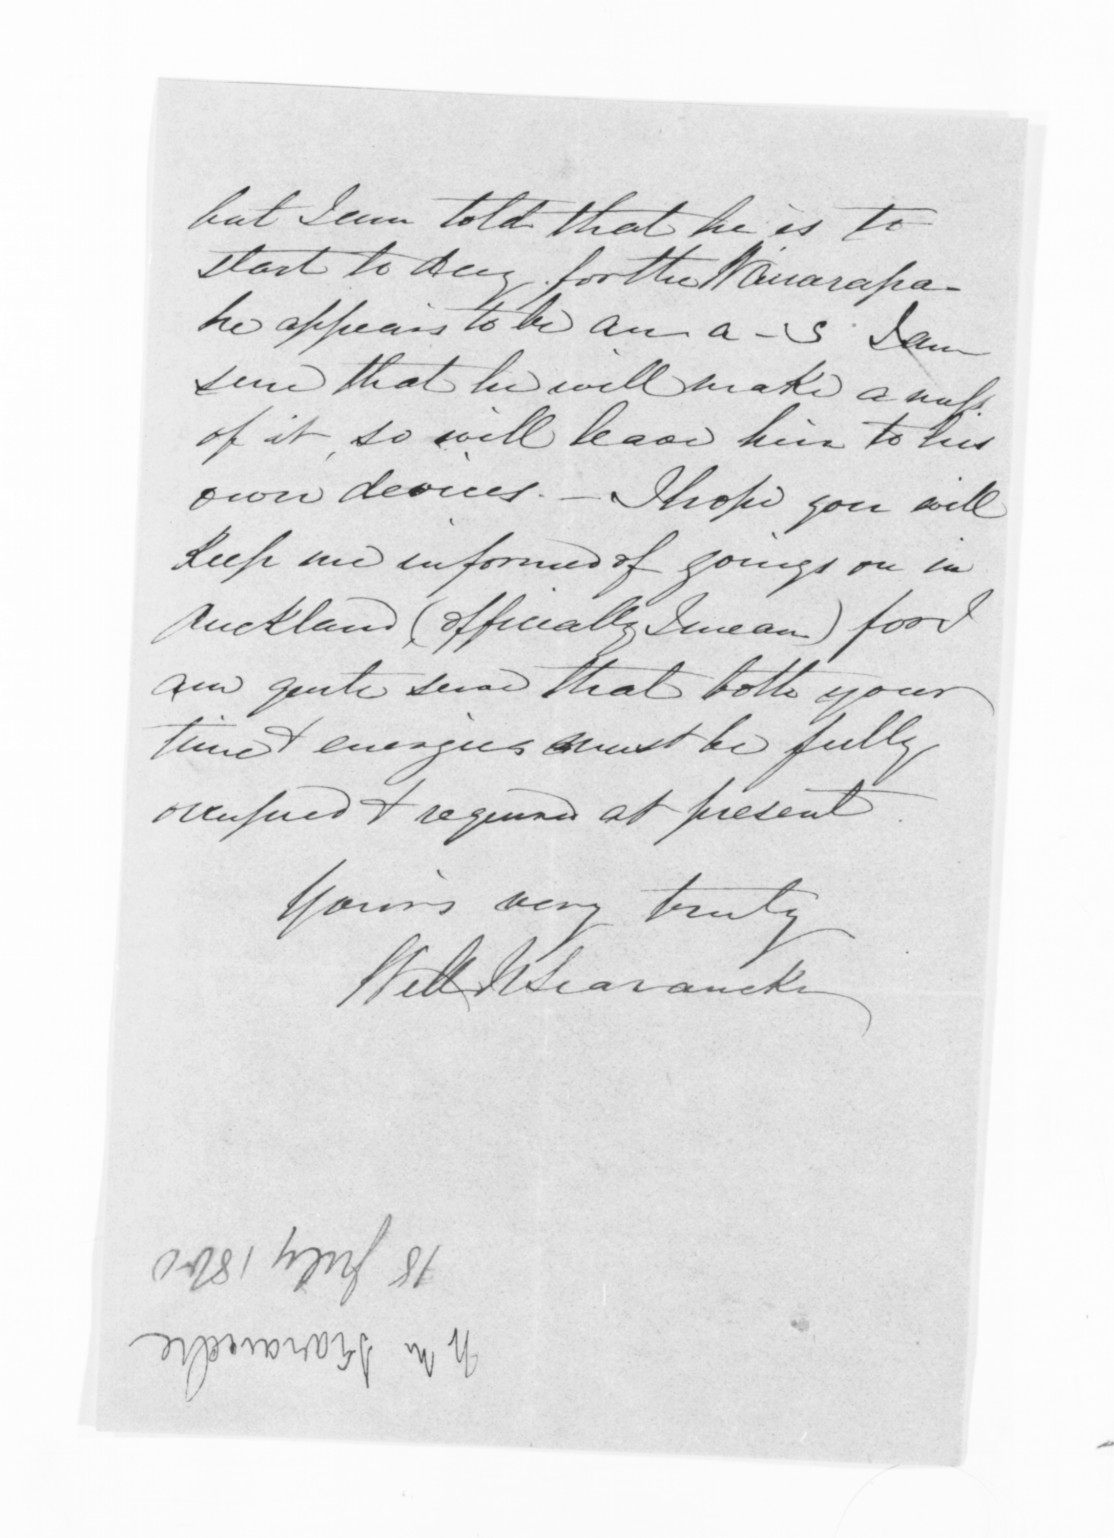 but I am told that he is to
start to day for the Wairarapa -
he appears to be an a - s I am
sure that he will make a mess
of it, so will leave him to his
own devices. - I hope you will
Keep me informed of goings on in
Auckland (officially I mean) for I
am quite sure that both your
time & energies must be fully
occupied & required at present.
Yours very truly
Will N Searancke
18 July 1860
W N Searancke